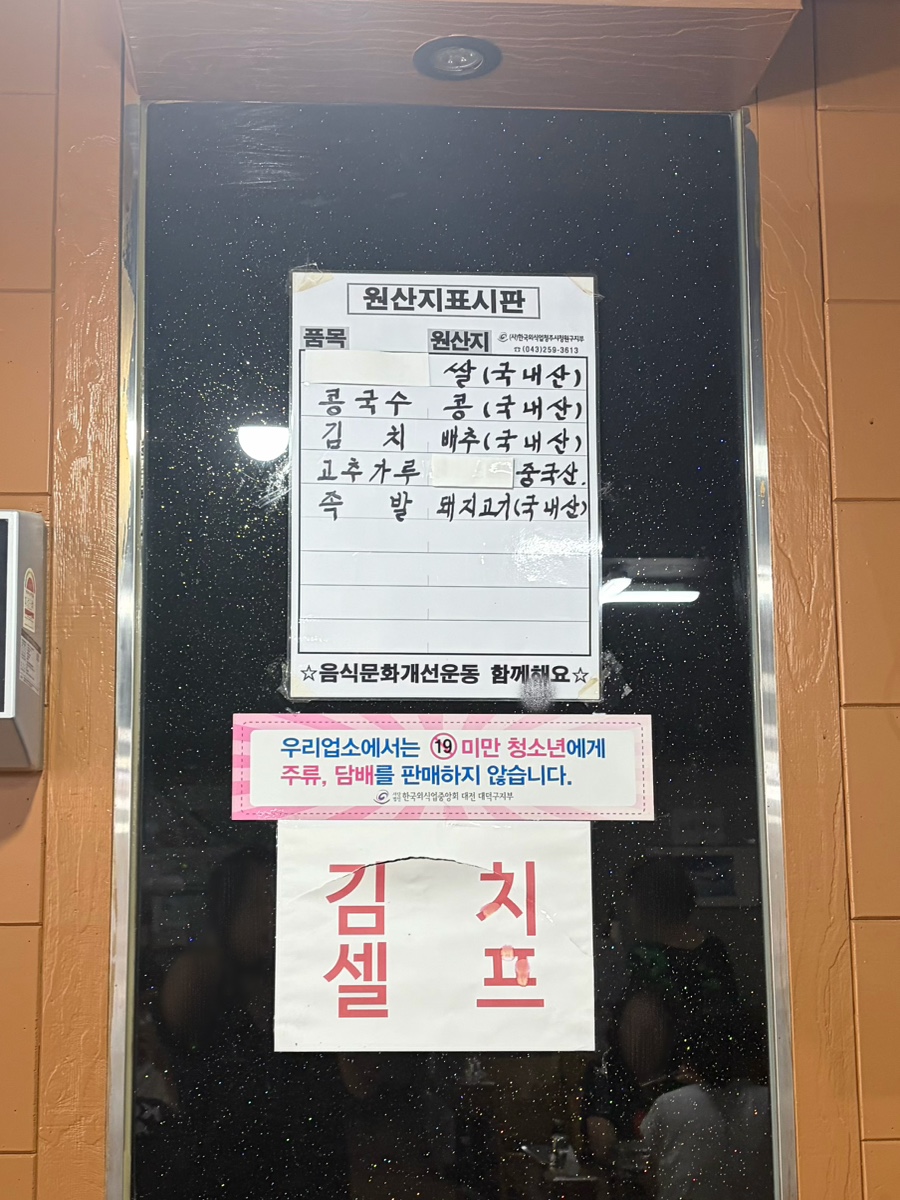 원산지표시판
품목 원산지 (사)한국외식업청주시청원구지부
☎(043)259-3613
쌀(국내산)
콩국수 콩(국내산)
김치 배추(국내산)
고추가루 중국산.
족발 돼지고기(국내산)
☆음식문화개선운동 함께해요☆
우리업소에서는 19 미만 청소년에게
주류, 담배를 판매하지 않습니다.
한국외식업중앙회 대전 대덕구지부
김치
셀프